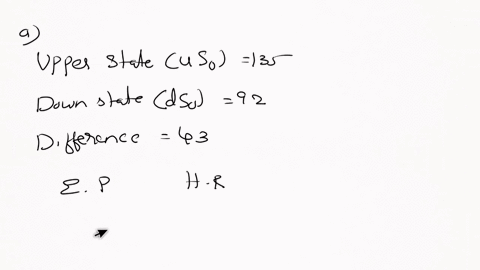 a)
Upper state (uS0) = 135
Down state (dS0) = 92
Difference = 43
E.P H.R